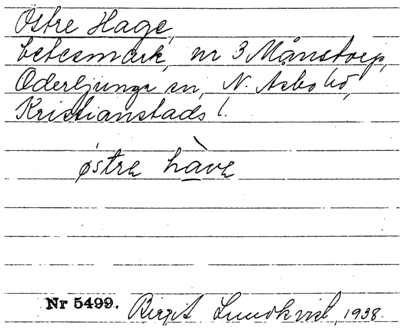 Östre Hage,
betesmark, nr 3 Månstorp,
Oderljunga sn, N. Åsbo hd,
Kristianstads l.
østre hàve
Nr 5499. Birgit Lundkvist, 1938.